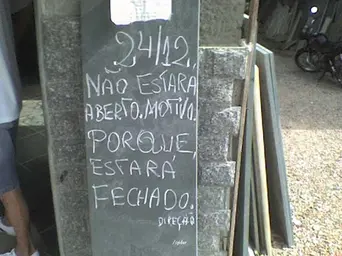 24/12.
NÃO ESTARA
ABERTO. MOTIVO.
PORQUE,
ESTARÁ
FECHADO.
DIREÇÃO